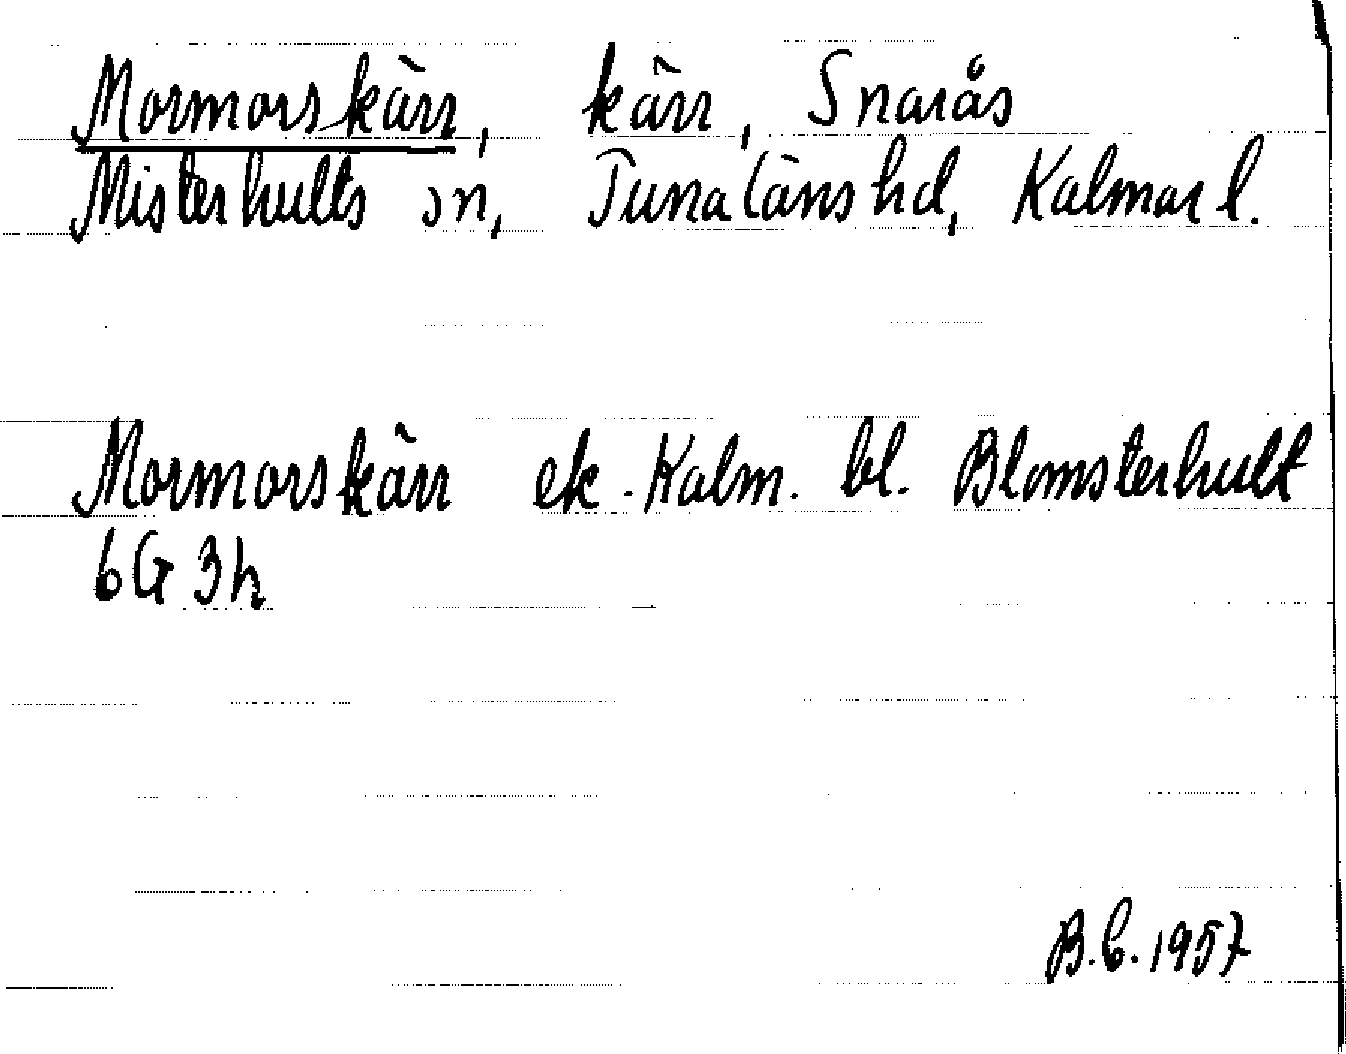 Mormorskärr, kärr, Snarås
Misterhults sn, Tunaläns hd, Kalmar l.
Mormorskärr ek. Kalm. bl. Blomsterhult
6G 3h
B.C. 1957